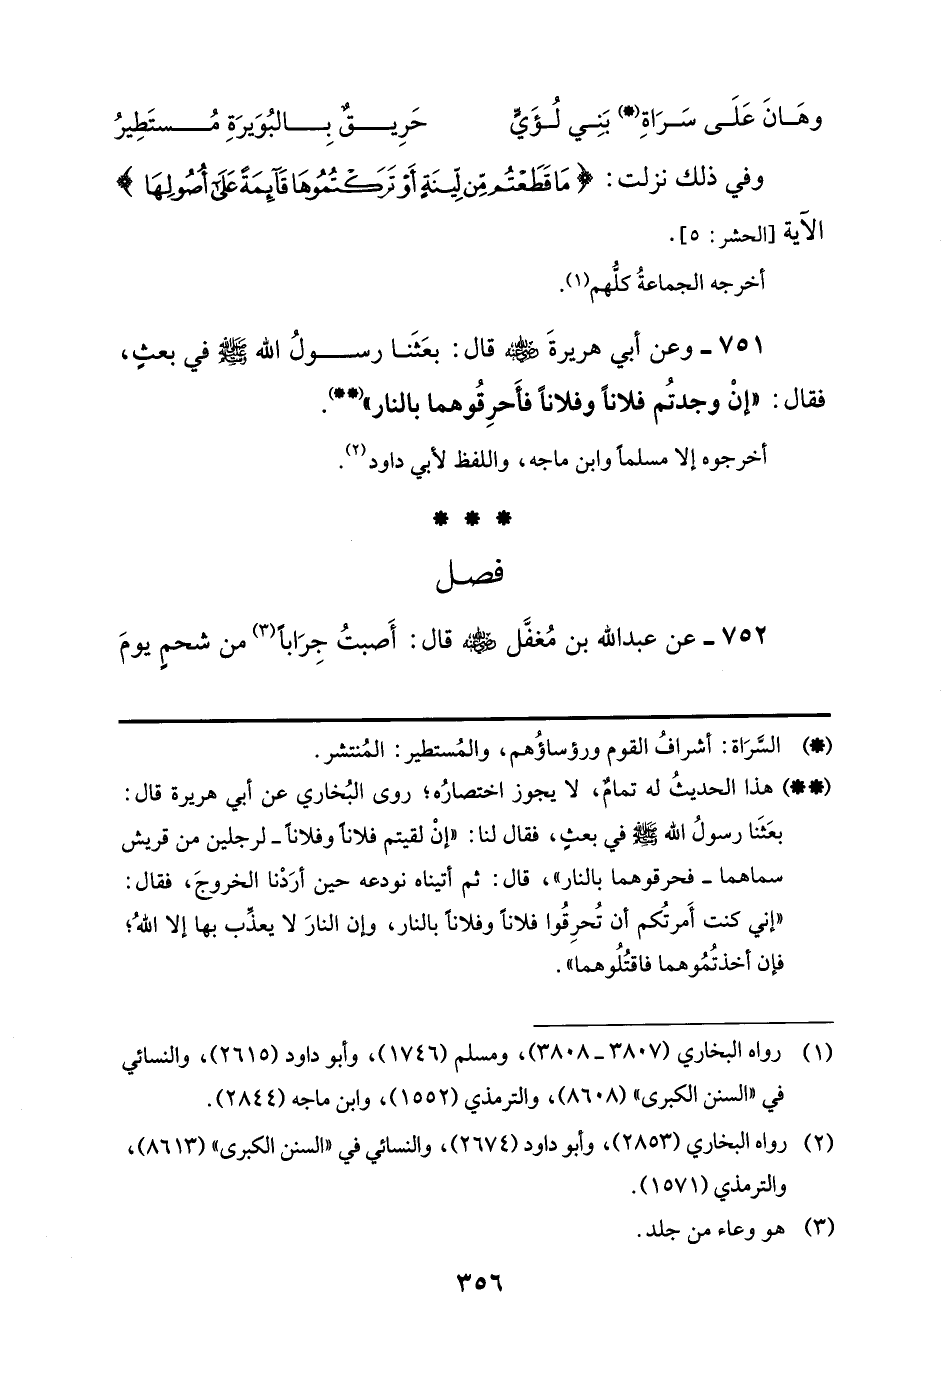 وهَـانَ عَلَـى سَـرَاةِ(*) بَنِـي لُـؤَيٍّ حَرِيـقٌ بِـالبُوَيرَةِ مُـستَطِيرُ
وفي ذلك نزلت: ﴿مَا قَطَعْتُم مِّن لِّينَةٍ أَوْ تَرَكْتُمُوهَا قَآئِمَةً عَلَىٰٓ أُصُولِهَا﴾
الآية [الحشر: ٥].
أخرجه الجماعةُ كلُّهم(١).
٧٥١ ـ وعن أبي هريرةَ رضي الله عنه قال: بعَثَنـا رسـولُ الله ﷺ في بعثٍ،
فقال: «إنْ وجدتُم فلاناً وفلاناً فأَحرِقُوهما بالنار»(**).
أخرجوه إلا مسلماً وابن ماجه، واللفظ لأبي داود(٢).
* * *
فصل
٧٥٢ ـ عن عبدالله بن مُغفَّل رضي الله عنه قال: أَصبتُ جِرَاباً(٣) من شحمٍ يومَ
(*) السَّرَاة: أشرافُ القوم ورؤساؤُهم، والمُستطير: المُنتشر.
(**) هذا الحديثُ له تمامٌ، لا يجوز اختصارُه؛ روى البُخاري عن أبي هريرة قال:
بعَثَنا رسولُ الله ﷺ في بعثٍ، فقال لنا: «إنْ لقيتم فلاناً وفلاناً ـ لرجلين من قريش
سماهما ـ فحرقوهما بالنار»، قال: ثم أتيناه نودعه حين أرَدْنا الخروجَ، فقال:
«إني كنت أمرتُكم أن تُحرِقُوا فلاناً وفلاناً بالنار، وإن النارَ لا يعذِّب بها إلا اللهُ؛
فإن أخذتُمُوهما فاقتُلُوهما».
(١) رواه البخاري (٣٨٠٧ ـ ٣٨٠٨)، ومسلم (١٧٤٦)، وأبو داود (٢٦١٥)، والنسائي
في «السنن الكبرى» (٨٦٠٨)، والترمذي (١٥٥٢)، وابن ماجه (٢٨٤٤).
(٢) رواه البخاري (٢٨٥٣)، وأبو داود (٢٦٧٤)، والنسائي في «السنن الكبرى» (٨٦١٣)،
والترمذي (١٥٧١).
(٣) هو وعاء من جلد.
٣٥٦